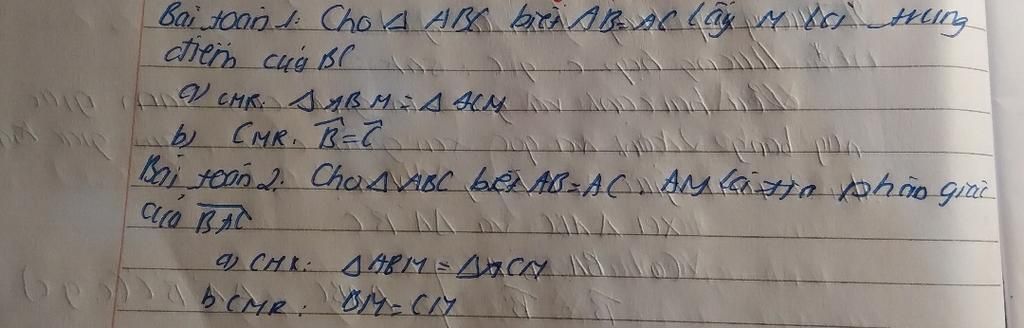 Bài toán 1: Cho Δ ABC biết AB = AC lấy M là trung
điểm của BC
a) CMR: Δ ABM = Δ ACM
b) CMR: B̂ = Ĉ
Bài toán 2: Cho Δ ABC biết AB = AC. AM là tia phân giác
của BAC
a) CMR: Δ ABM = Δ ACM
b CMR: BM = CM